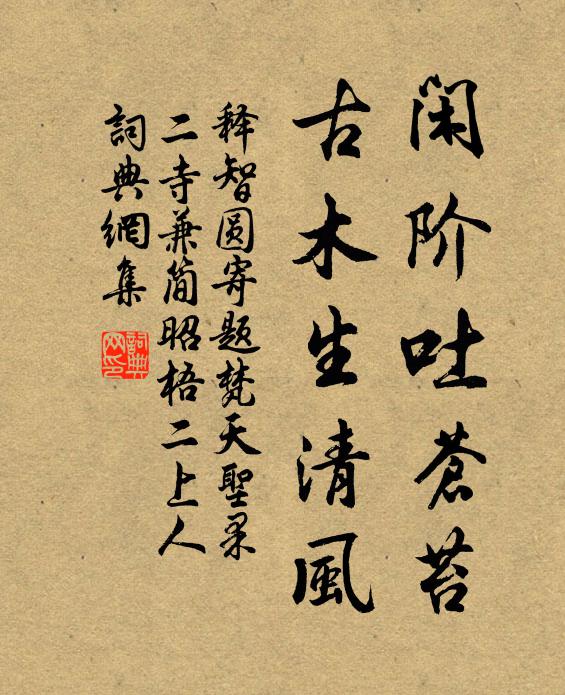 闲阶吐蒼苔
古木生清風
释智圆寄题梵天聖果
二寺兼简昭梧二上人
詞典網集
詞典
网印